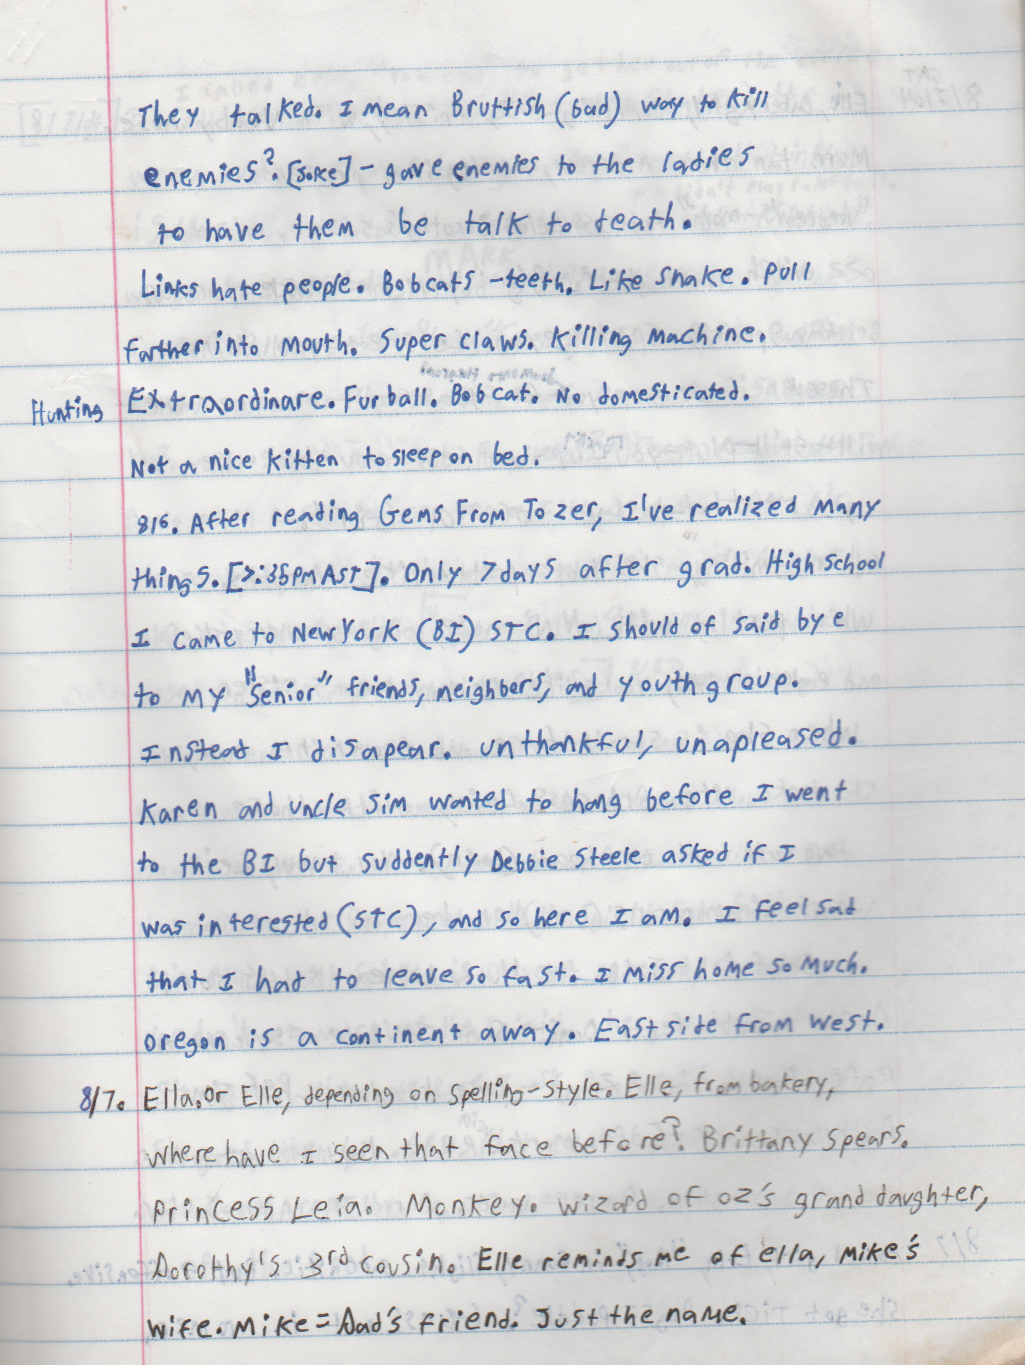 They talked. I mean Bruttish (bad) way to kill
enemies? [Joke] - gave enemies to the ladies
to have them be talk to death.
Links hate people. Bobcats - teeth. Like snake. Pull
farther into mouth. Super claws. Killing machine.
Hunting Extraordinare. Fur ball. Bobcat. No domesticated.
Not a nice kitten to sleep on bed.
8/6. After reading Gems From Tozer, I've realized many
things. [7:35PM AST]. Only 7 days after grad. High School
I came to New York (BI) STC. I should of said bye
to my "Senior" friends, neighbors, and youth group.
Instead I disapear. unthankful, unapleased.
Karen and uncle Jim wanted to hang before I went
to the BI but suddently Debbie Steele asked if I
was interested (STC), and so here I am. I feel sad
that I had to leave so fast. I miss home so much.
Oregon is a continent away. East side from west.
8/7. Ella, or Elle, depending on spelling-style. Elle, from bakery,
where have I seen that face before? Brittany Spears.
Princess Leia. Monkey. Wizard of OZ's grand daughter,
Dorothy's 3rd cousin. Elle reminds me of ella, Mike's
wife. Mike = Dad's friend. Just the name.